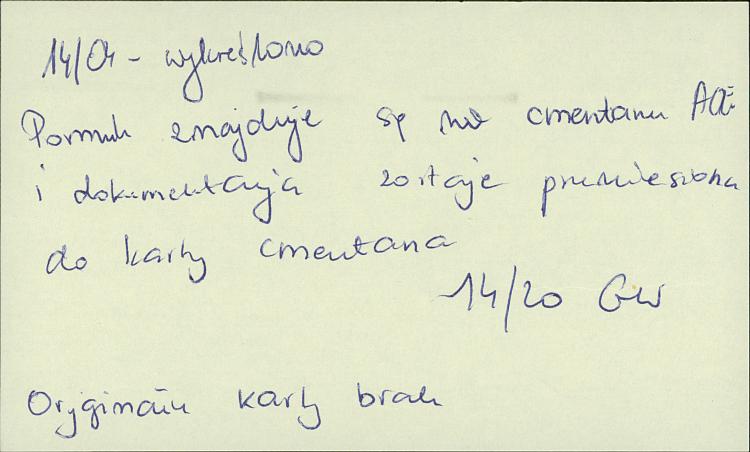 14/04 - wykreślono
Pomnik znajduje się na cmentarzu
i dokumentacja zostaje przeniesiona
do karty cmentarza
14/20 GW
Oryginału karty brak